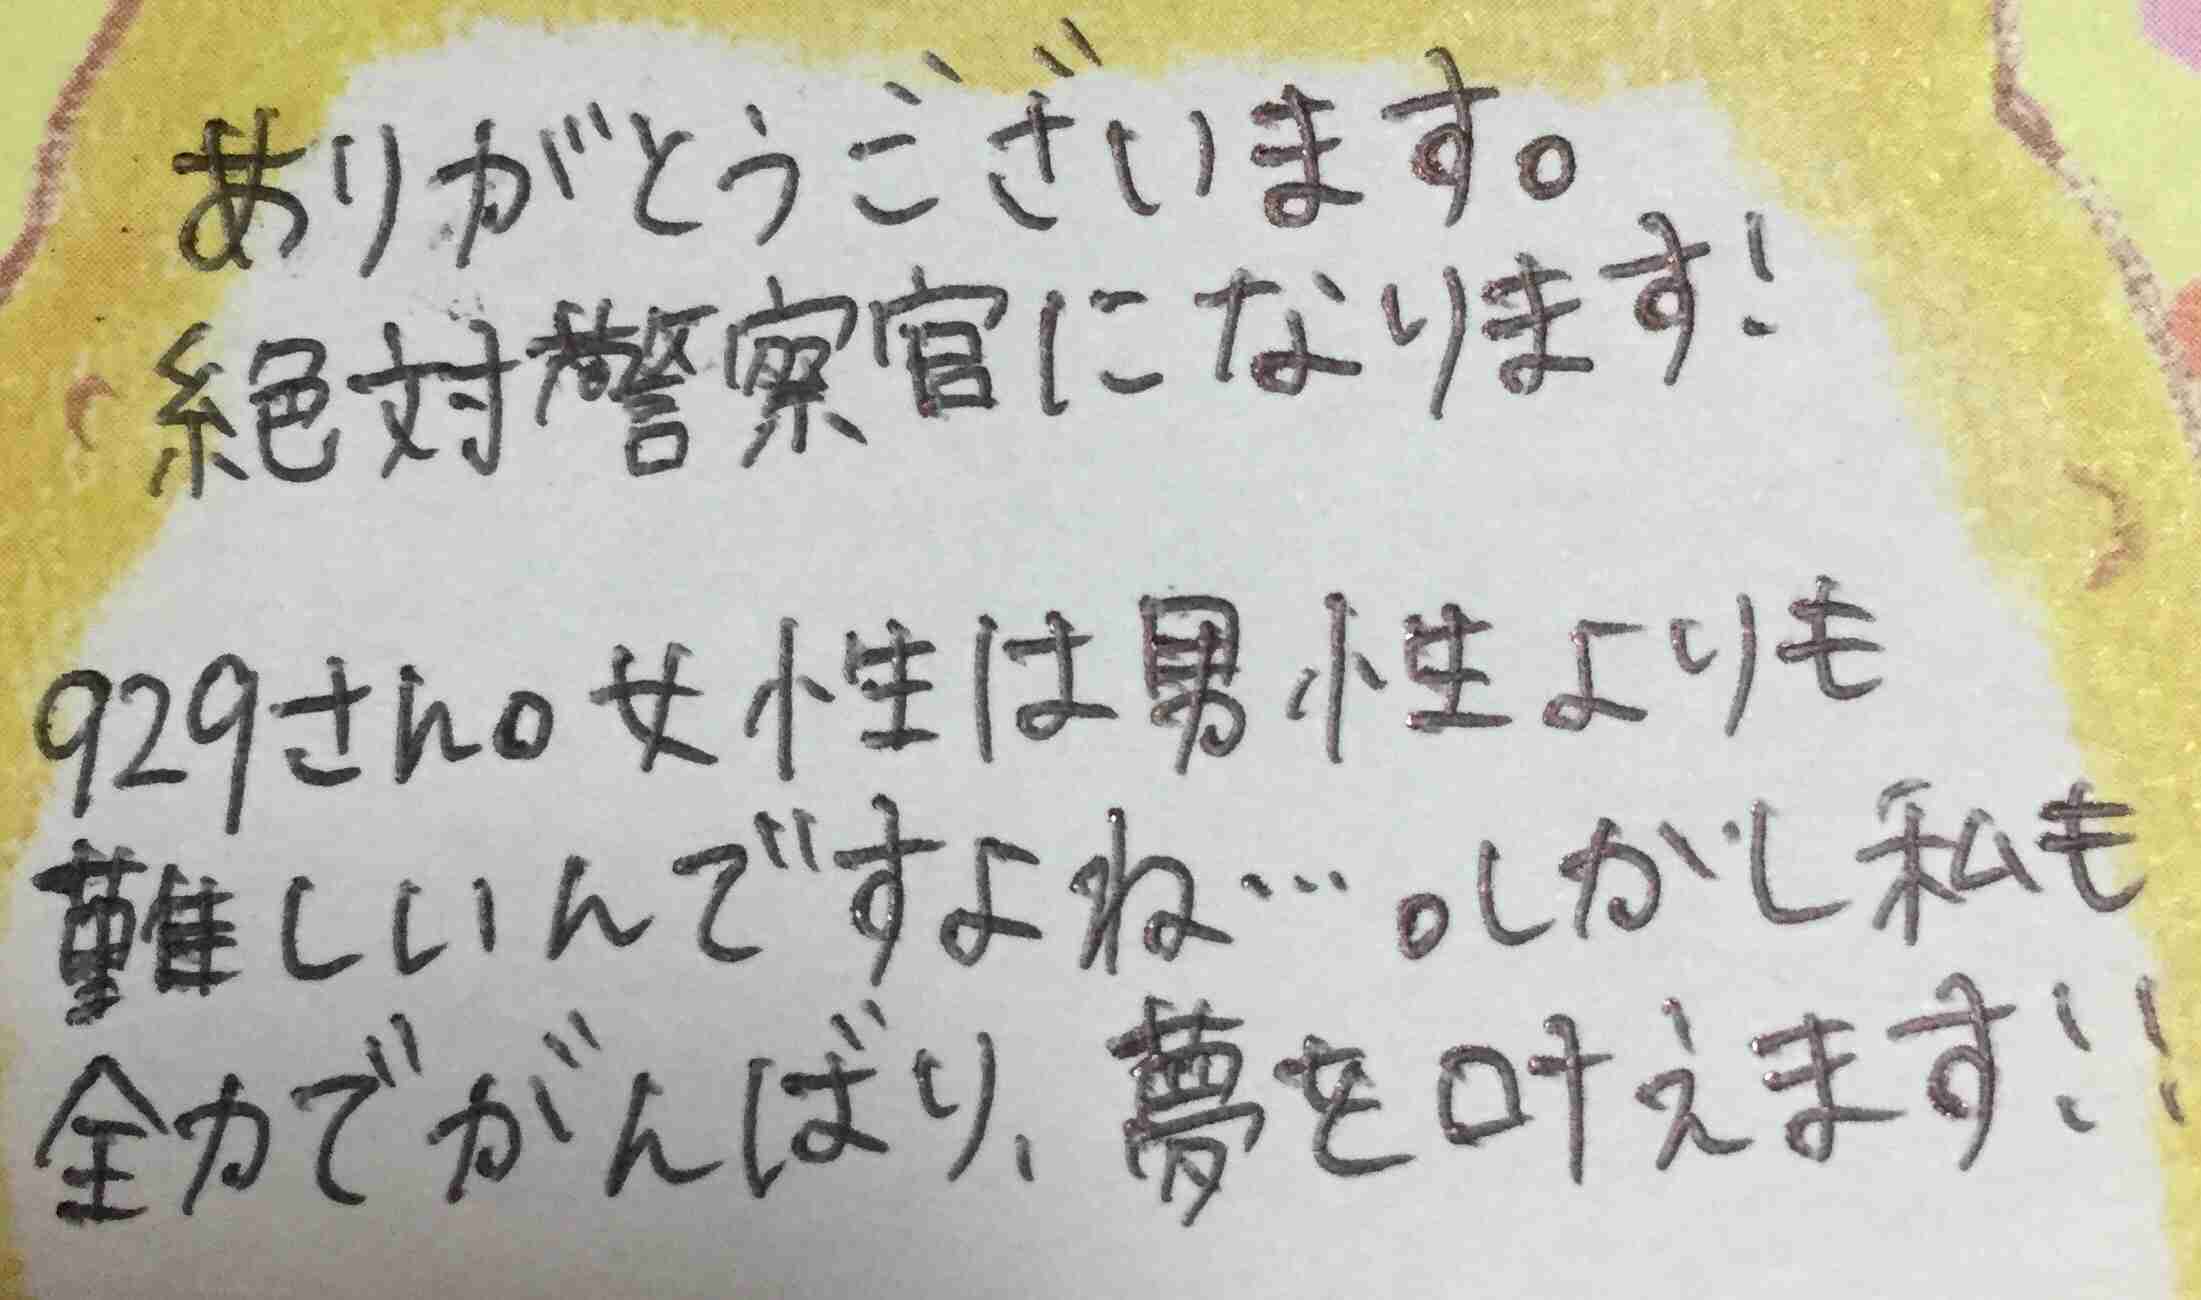 ありがとうございます。
絶対警察官になります!
929さん。女性は男性よりも
難しいんですよね…。しかし私も
全力でがんばり、夢を叶えます!!